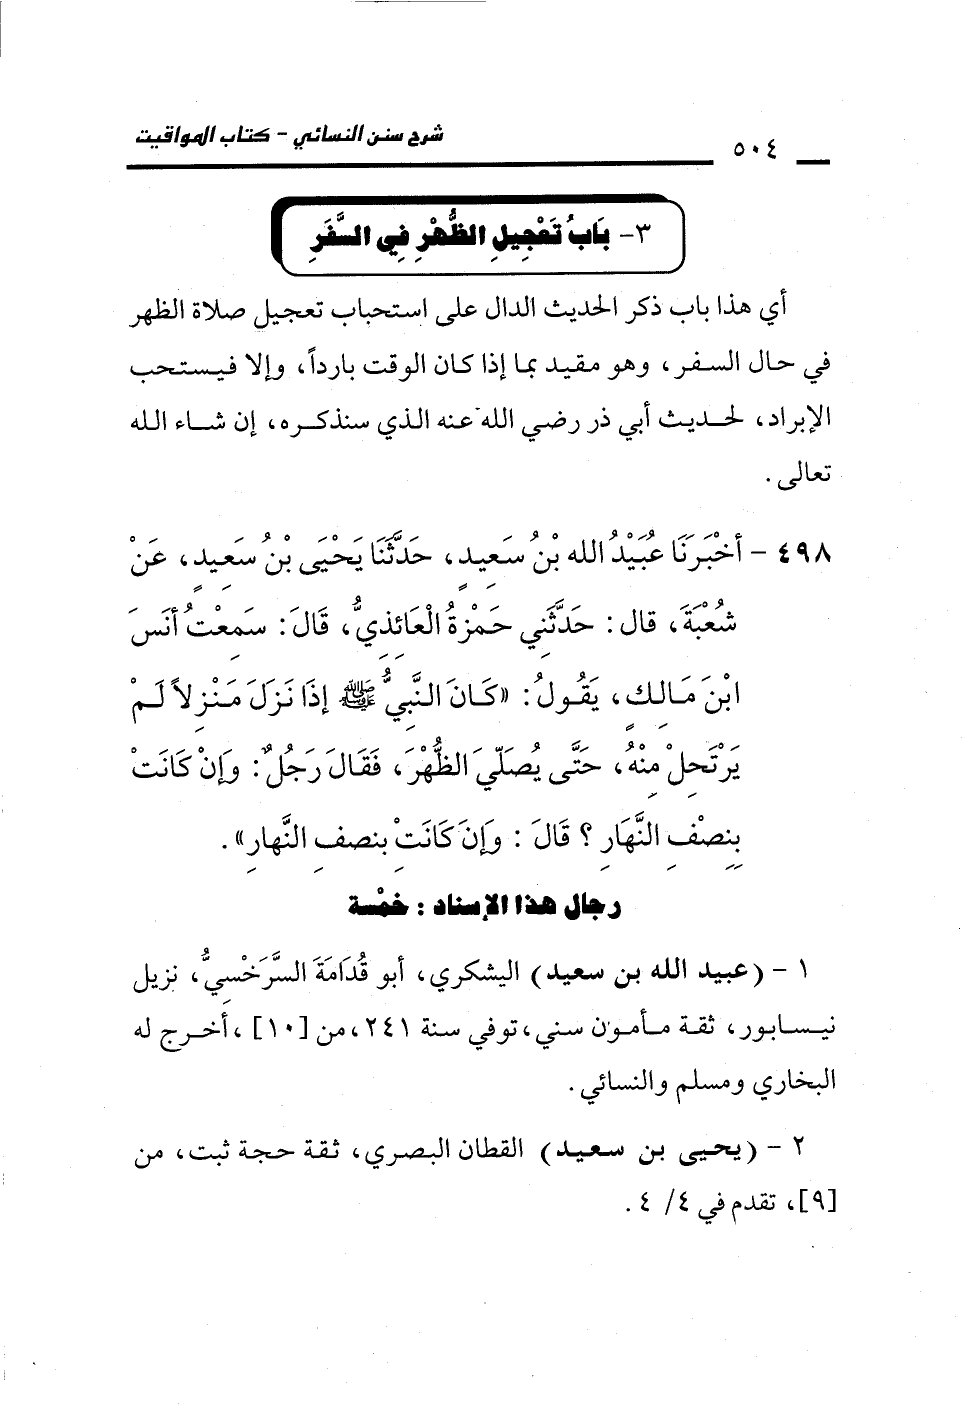 شرح سنن النسائي - كتاب المواقيت
٥٠٤
٣- بَابُ تَعْجِيلِ الظُّهْرِ فِي السَّفَرِ
أي هذا باب ذكر الحديث الدال على استحباب تعجيل صلاة الظهر
في حال السفر، وهو مقيد بما إذا كان الوقت بارداً، وإلا فيستحب
الإبراد، لحديث أبي ذر رضي الله عنه الذي سنذكره، إن شاء الله
تعالى .
٤٩٨ - أخْبَرَنَا عُبَيْدُ الله بْنُ سَعِيدٍ، حَدَّثَنَا يَحْيَى بْنُ سَعِيدٍ، عَنْ
شُعْبَةَ، قال : حَدَّثَنِي حَمْزَةُ الْعَائِذِيُّ، قَالَ : سَمِعْتُ أنَسَ
ابْنَ مَالِكٍ، يَقُولُ : «كَانَ النَّبِيُّ ﷺ إذَا نَزَلَ مَنْزِلاً لَمْ
يَرْتَحِلْ مِنْهُ، حَتَّى يُصَلِّيَ الظُّهْرَ، فَقَالَ رَجُلٌ : وَإنْ كَانَتْ
بِنِصْفِ النَّهَارِ ؟ قَالَ : وَإنَ كَانَتْ بِنصفِ النَّهارِ» .
رجال هذا الإسناد : خمْسة
١ - (عبيد الله بن سعيد) اليشكري، أبو قُدَامَةَ السَّرَخْسِيُّ، نزيل
نيسابور، ثقة مأمون سني، توفي سنة ٢٤١، من [١٠]، أخرج له
البخاري ومسلم والنسائي .
٢ - (يحيى بن سعيد) القطان البصري، ثقة حجة ثبت، من
[٩]، تقدم في ٤/ ٤ .